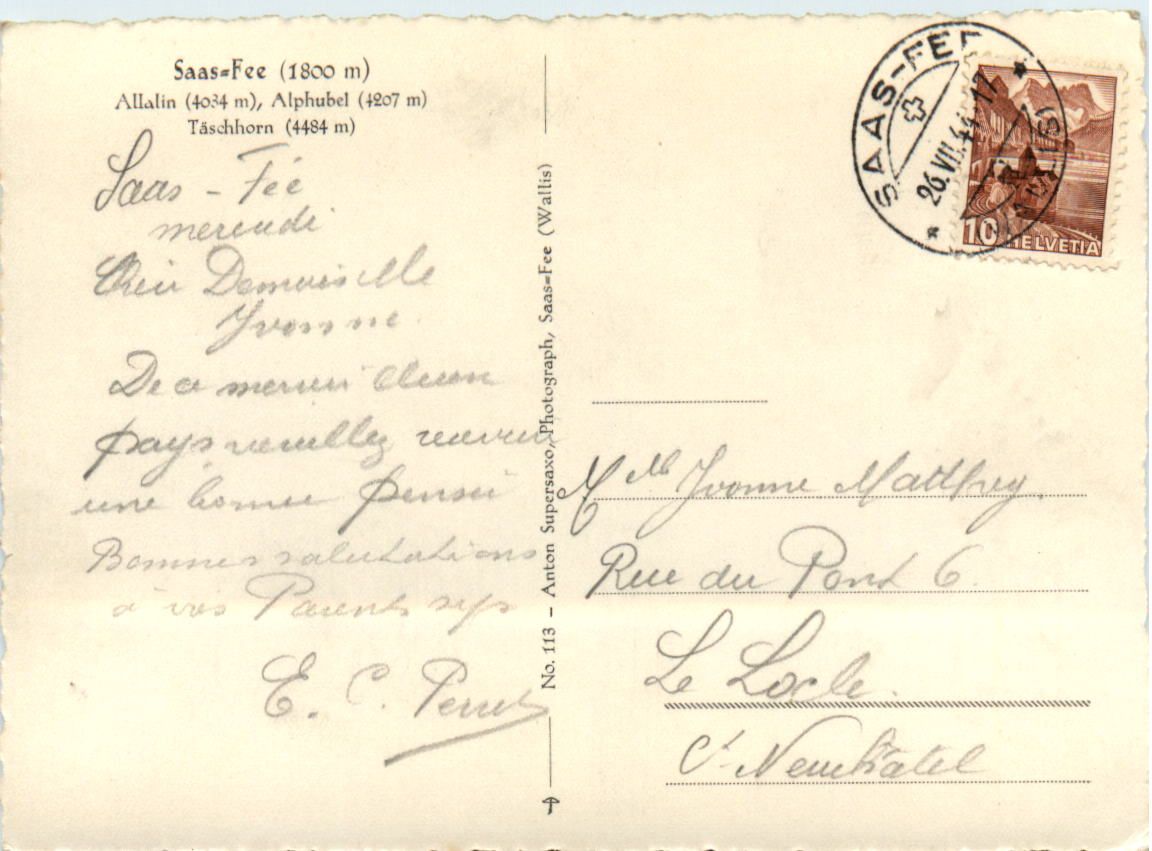 Saas=Fee (1800 m)
Allalin (4034 m), Alphubel (4207 m)
Täschhorn (4484 m)
Saas - Fée
mercudi
Demoiselle
Yvonne
De ce
pays veuillez
une bonne pensée
Bonnes salutations
à vos Parents
E. C. Perret
No. 113 - Anton Supersaxo, Photograph, Saas=Fee (Wallis)
SAAS-FEE
26.VII.44-17
(WALLIS)
10 HELVETIA
Mlle Yvonne Matthey.
Rue du Pont 6
Le Locle.
Ct Neuchâtel